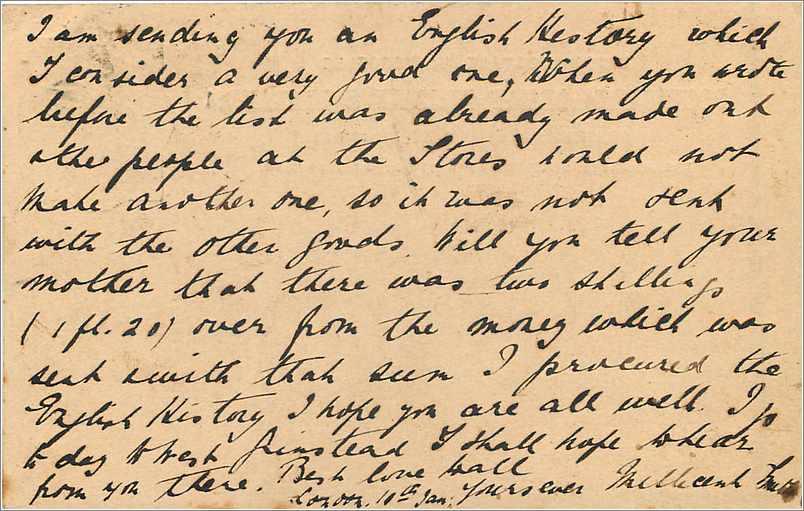 I am sending you an English History which
I consider a very good one, When you wrote
before the list was already made out
& the people at the Stores could not
make another one, so it was not sent
with the other goods. Will you tell your
mother that there was two shillings
(1 fl. 20) over from the money which was
sent & with that sum I procured the
English History I hope you are all well. I go
to day to West Grinstead I shall hope to hear
from you there. Best love to all
London. 10th Jan. Yours ever Millicent